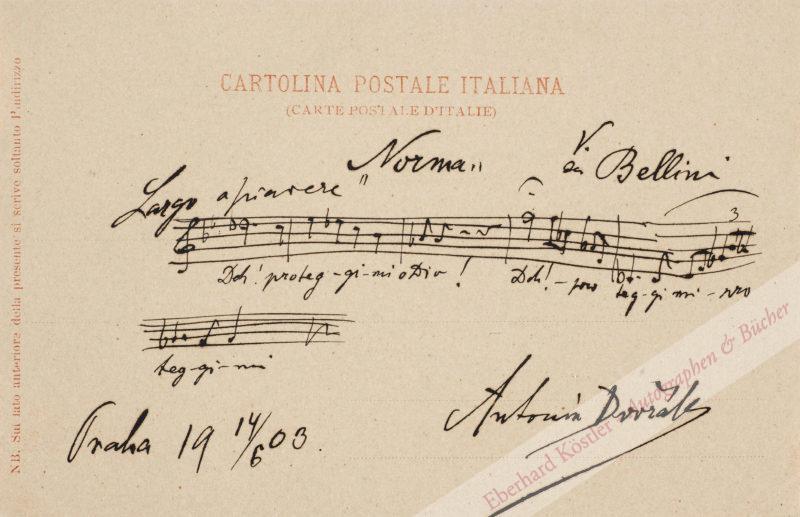 CARTOLINA POSTALE ITALIANA
(CARTE POSTALE D'ITALIE)
NB. Sul lato anteriore della presente si scrive soltanto l'indirizzo
"Norma" Bellini
Largo a piacere
3
Deh! proteg-gi-mi o Dio! Deh! - pro teg-gi mi - pro
teg-gi-mi
Antonín Dvořák
Praha 19 14/6 03.
Eberhard Köstler Autographen & Bücher